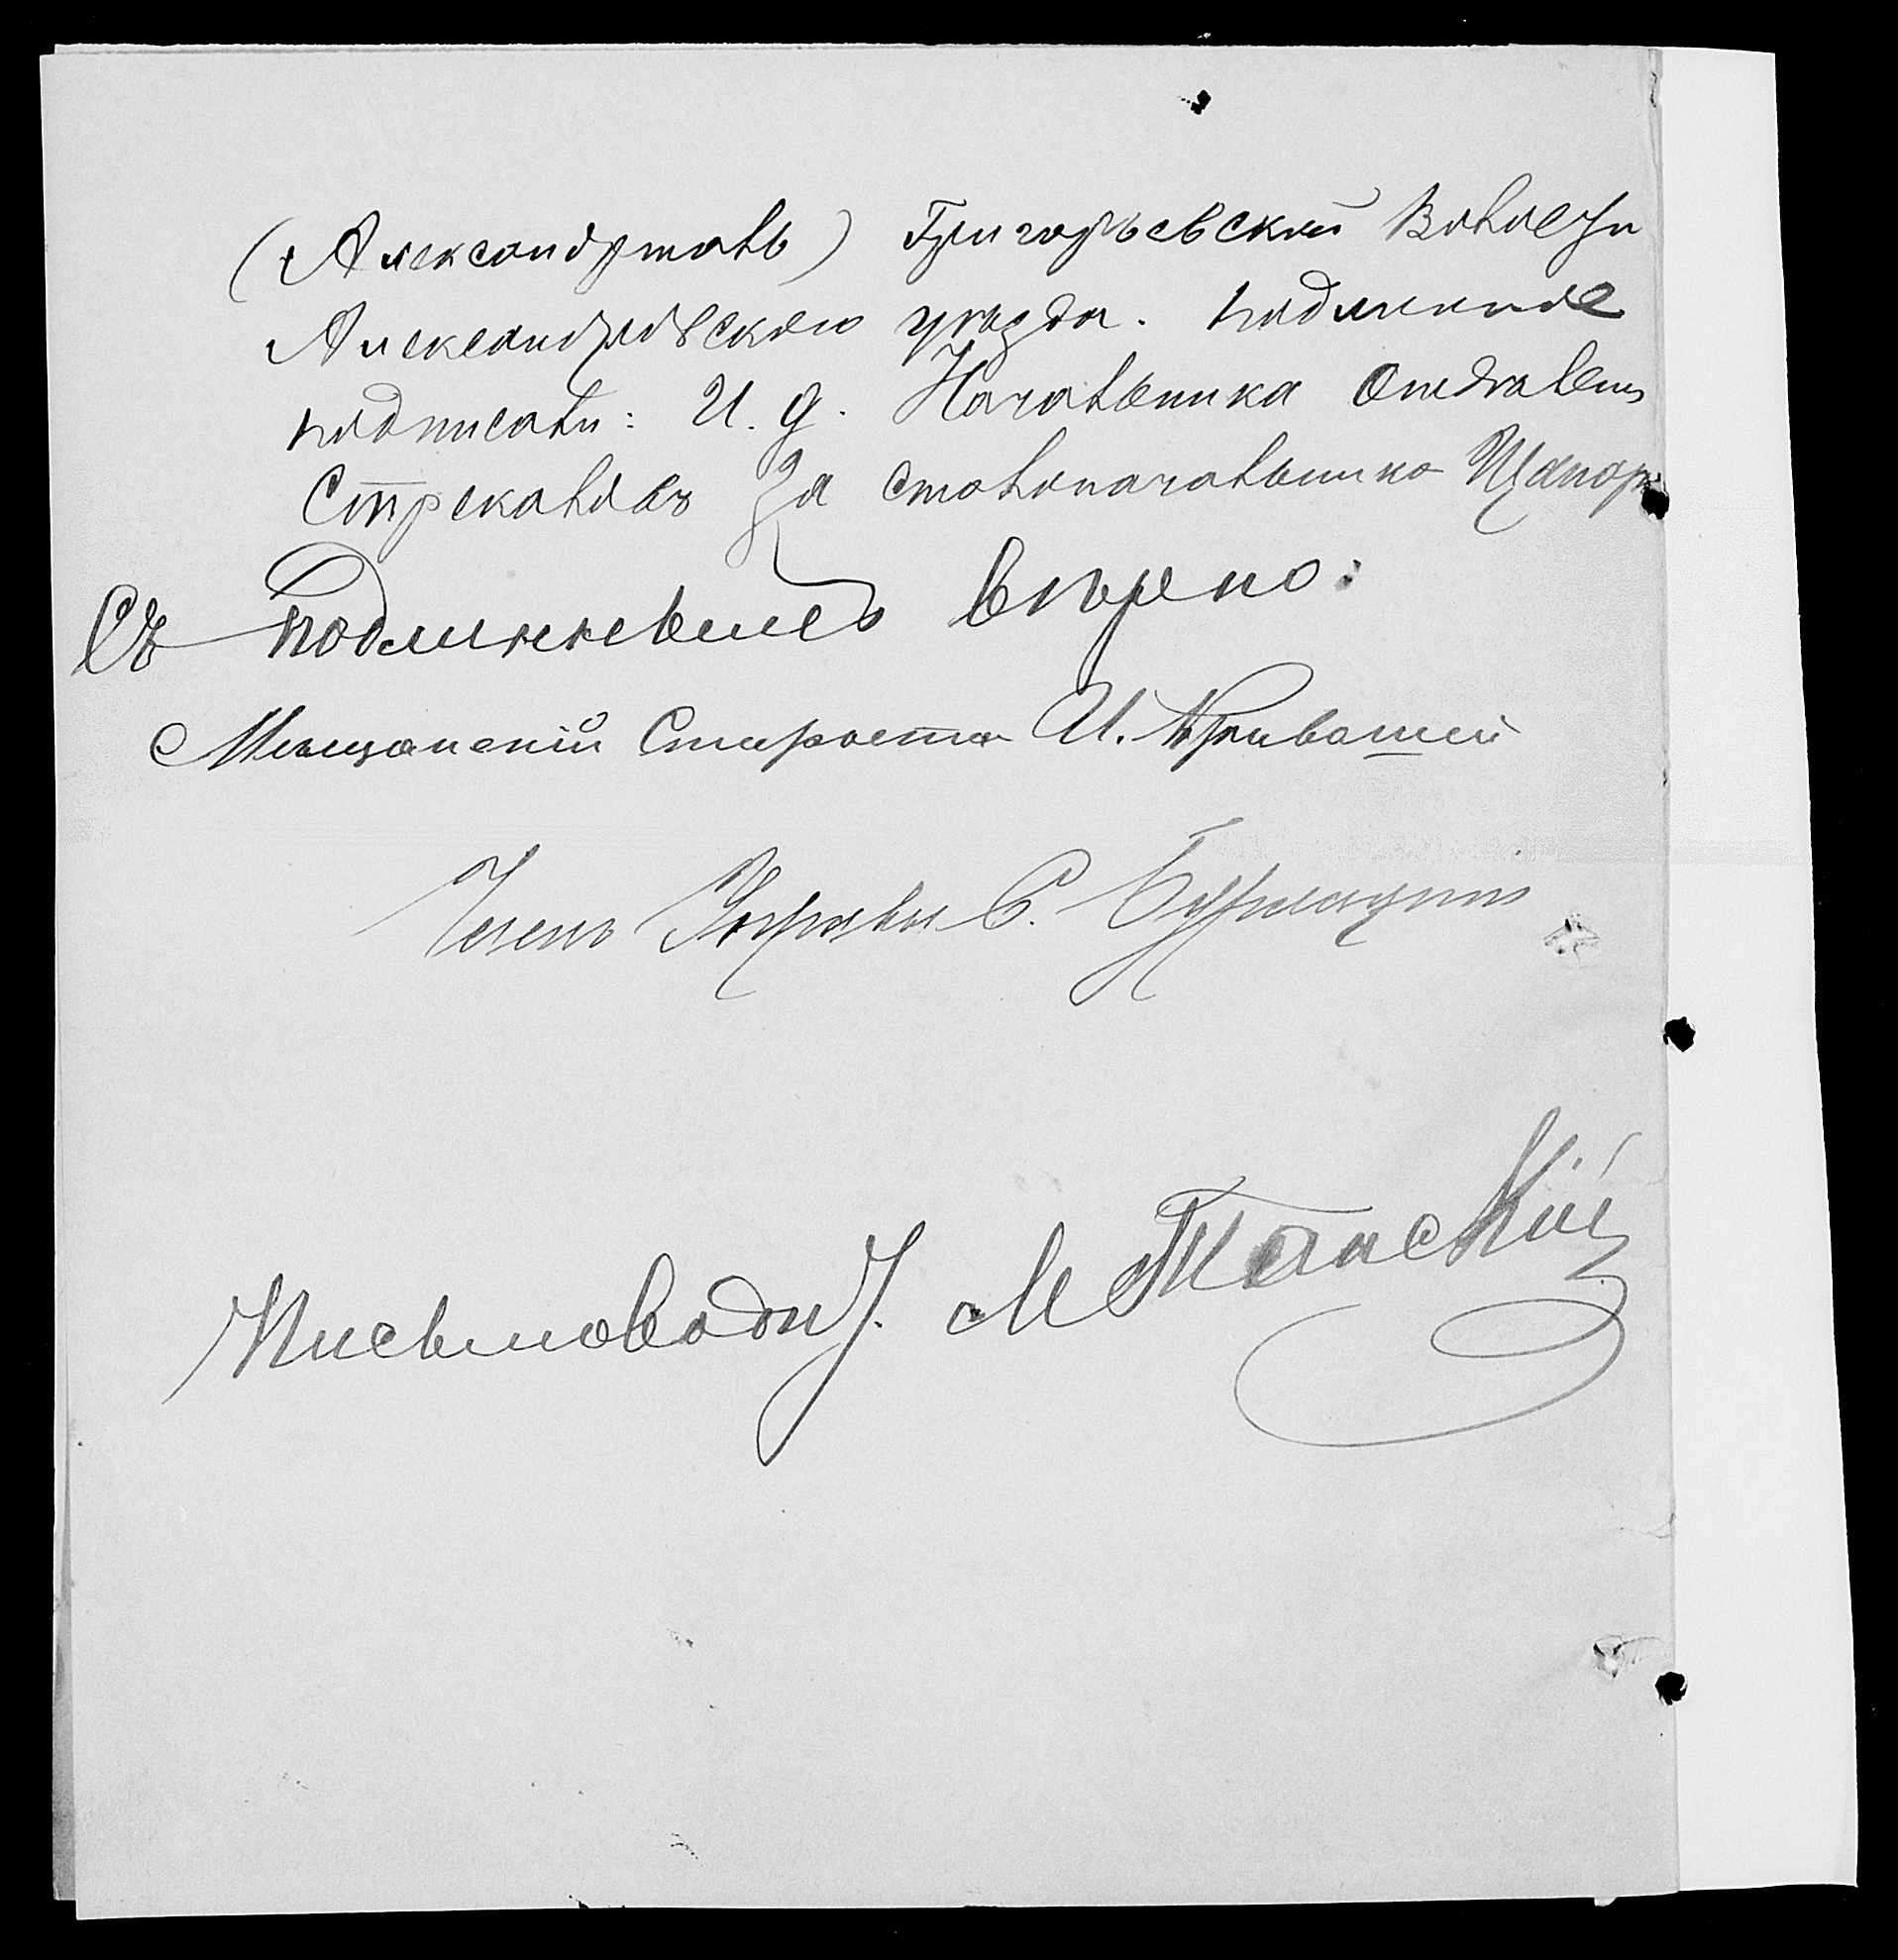 (Александрталь) Григорьевской Волости
Александровскаго уѣзда. подлинное
подписали: И. д. Начальника Отдѣленія
Стрекаловъ За столоначальника
Съ подлиннымъ вѣрно:
Мѣщанскій Староста И.
Членъ Управы С.
Письмоводит. М